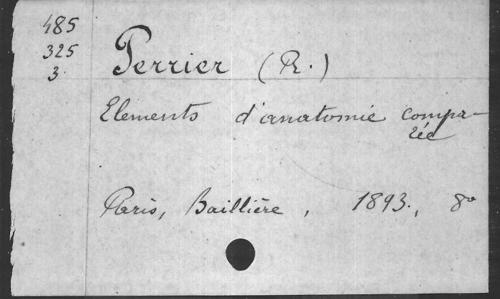 485
325
3
Perrier (R.)
Elements d'anatomie compa-
rée
Paris, Baillière, 1893., 8º